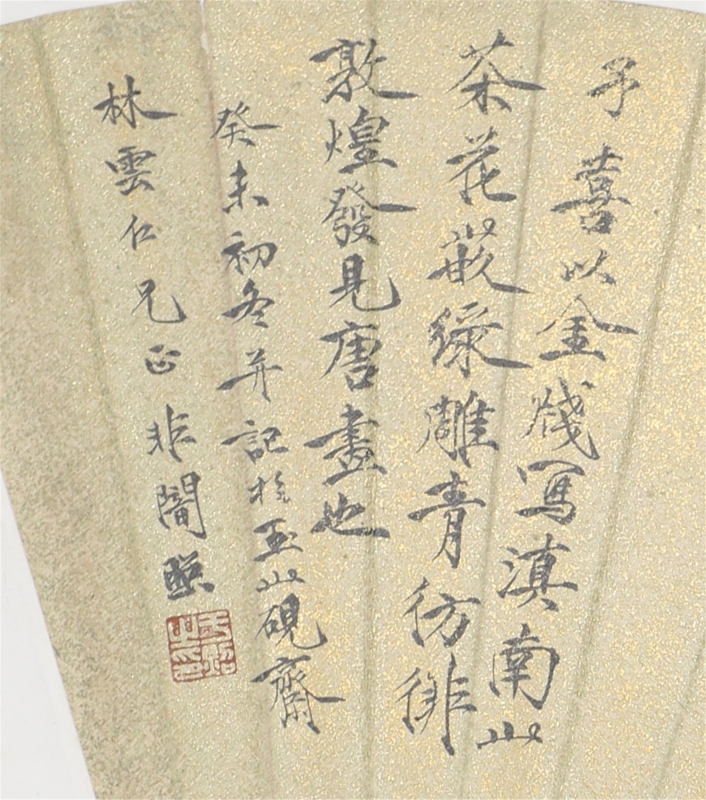 予喜以金牋寫滇南山
茶花嵌綠雕青彷彿
敦煌發見唐畫也
癸未初冬并記於玉山硯齋
林雲仁兄正 非闇照
于照之印